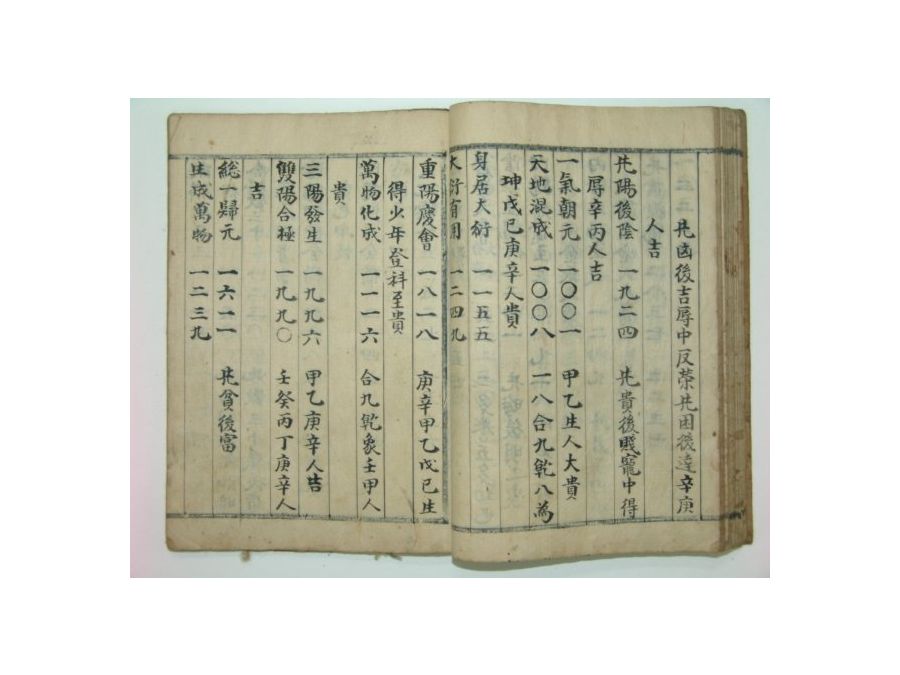 先凶後吉辱中反榮先困後達辛庚
人吉
先陽後陰 一九二四 先貴後賤寵中得
辱辛丙人吉
一氣朝元 一〇〇一 甲乙生人大貴
天地混成 一〇〇八 一八合九乾八為
坤戊己庚辛人貴
身居大衍 一一五五
大衍有用 一二四九
重陽慶會 一八一八 庚辛甲乙戊己生
得少年登科至貴
萬物化成 一一一六 合九乾象壬甲人
貴
三陽發生 一九九六 甲乙庚辛人吉
雙陽合極 一九九〇 壬癸丙丁庚辛人
吉
總一歸元 一六二一 先貧後富
生成萬物 一二三九